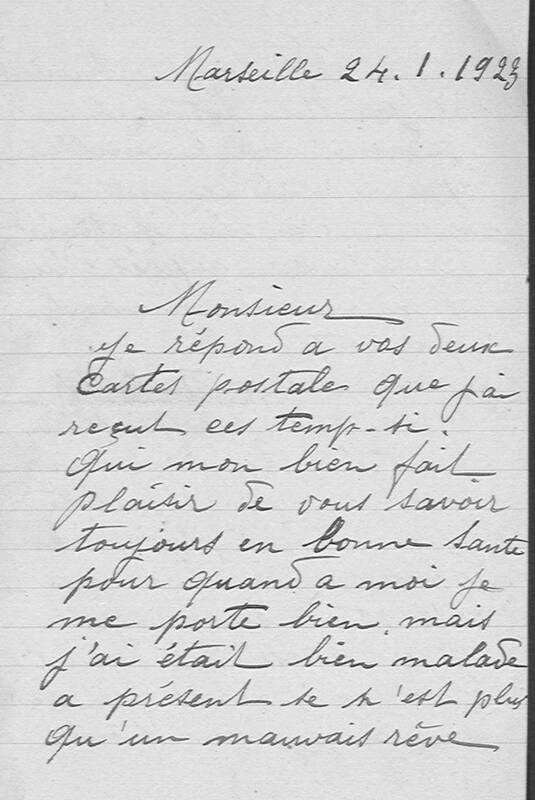 Marseille 24.1.1923
Monsieur
je répond a vos deux
Cartes postale que j'ai
reçut ces temp-si.
Qui mon bien fait
plaisir de vous savoir
toujours en bonne Sante
pour quand a moi je
me porte bien, mais
j'ai était bien malade
a présent se n'est plus
Qu'un mauvais rêve